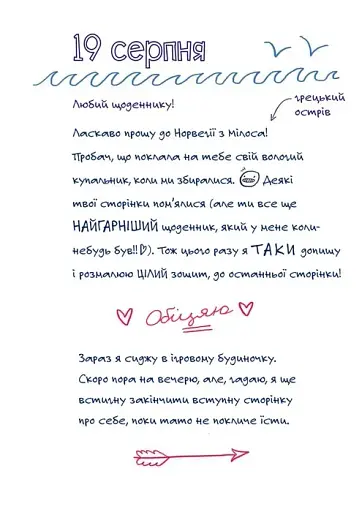 19 серпня
Любий щоденнику!
грецький
острів
Ласкаво прошу до Норвегії з Мілоса!
Пробач, що поклала на тебе свій вологий
купальник, коли ми збиралися. Деякі
твої сторінки пом'ялися (але ти все ще
НАЙГАРНІШИЙ щоденник, який у мене коли-
небудь був!!♡). Тож цього разу я ТАКИ допишу
і розмалюю ЦІЛИЙ зошит, до останньої сторінки!
♡ Обіцяю ♡
Зараз я сиджу в ігровому будиночку.
Скоро пора на вечерю, але, гадаю, я ще
встигну закінчити вступну сторінку
про себе, поки тато не покличе їсти.